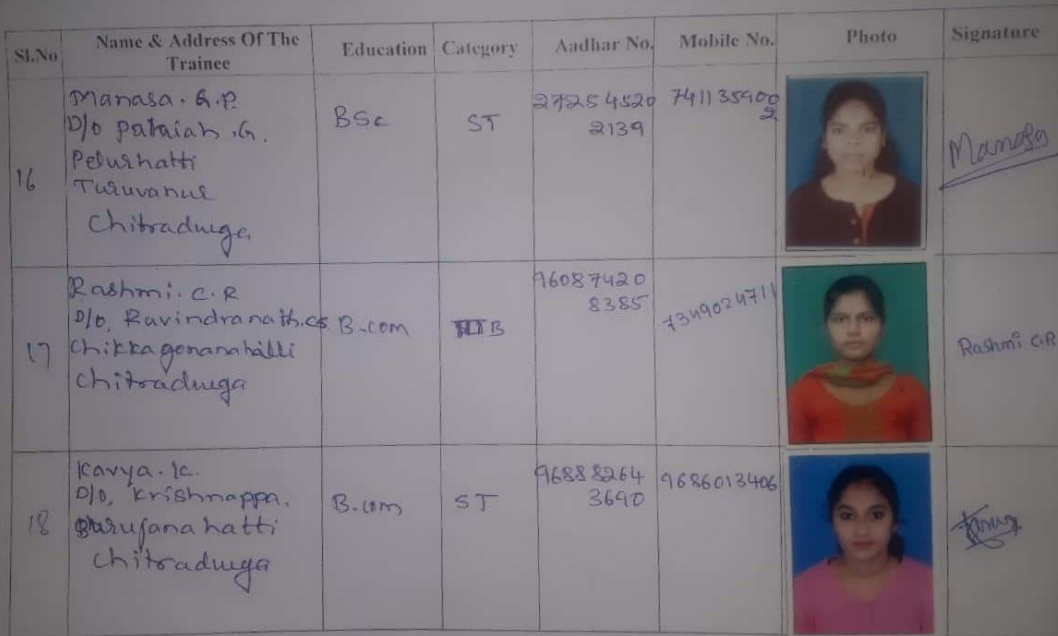 Sl.No Name & Address Of The Trainee Education Category Aadhar No. Mobile No. Photo Signature
16
Manasa. G.P.
D/o Pataiah .G.
Pelurhatti
Turuvanur
Chitradurga
BSc
ST
27254520
2139
741135900
2
Manasa
17
Rashmi. C.R
D/o, Ravindranath.
Chikkagonanahatti
Chitradurga
B.com
B
96087420
8385
7349024711
Rashmi C.R
18
Kavya. K.
D/o, Krishnappa.
hatti
Chitradurga
B.com
ST
96888264
3690
9686013406